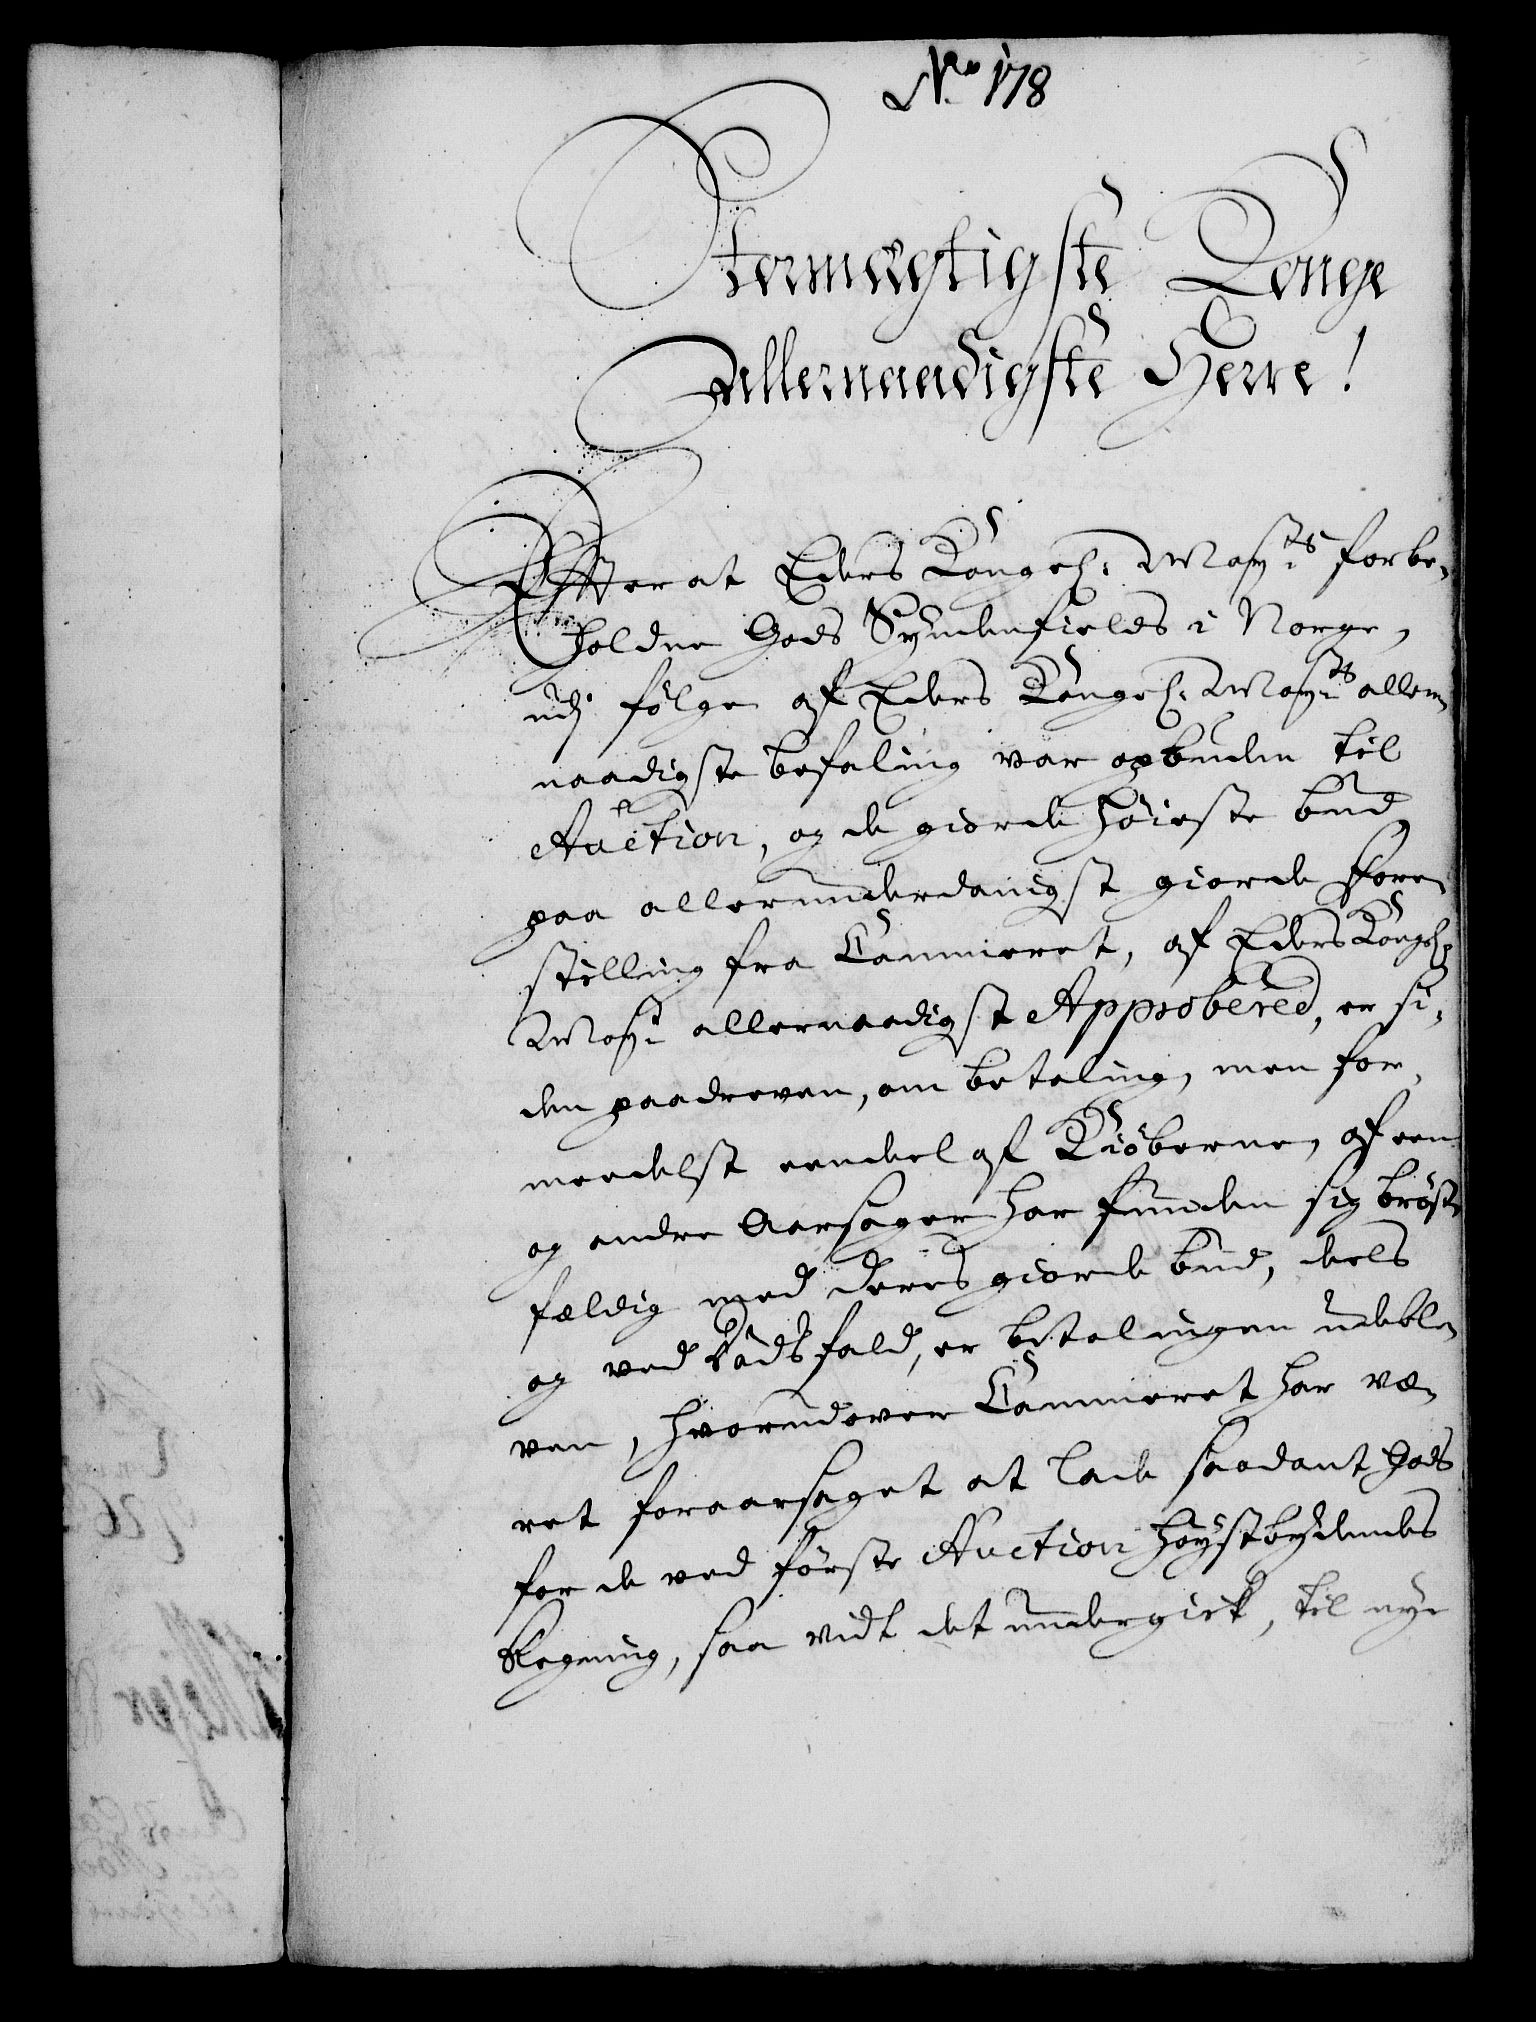 No 178
Stormægtigste Konge
Allernaadigste Herre!
Efterat Eders Kongel: May:ts forbe-
holdne Gods Syndenfields i Norge,
udj følge af Eders Kongel: May:ts aller-
naadigste befaling var opbuden til
Auction, og de giorde høieste bud,
paa allerunderdanigst giorde fore-
stilling fra Cammeret, af Eders Kongel:
May:t allernaadigst Approbered, er si-
den paadreven, om betaling, men for-
medelst eendeel af Kiøberne, af een
og andre Aarsager har funden sig brøst-
fældig med deres giorde bud, deels
og ved Dødsfald, er betalingen udeble-
ven, hvorudover Cammeret har væ-
ret foraarsaget at lade saadant Gods
for de ved første Auction høystbydendes
Regning, saa vidt det undergick, til nye